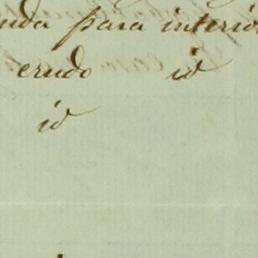 nda para interio
erudo id
id